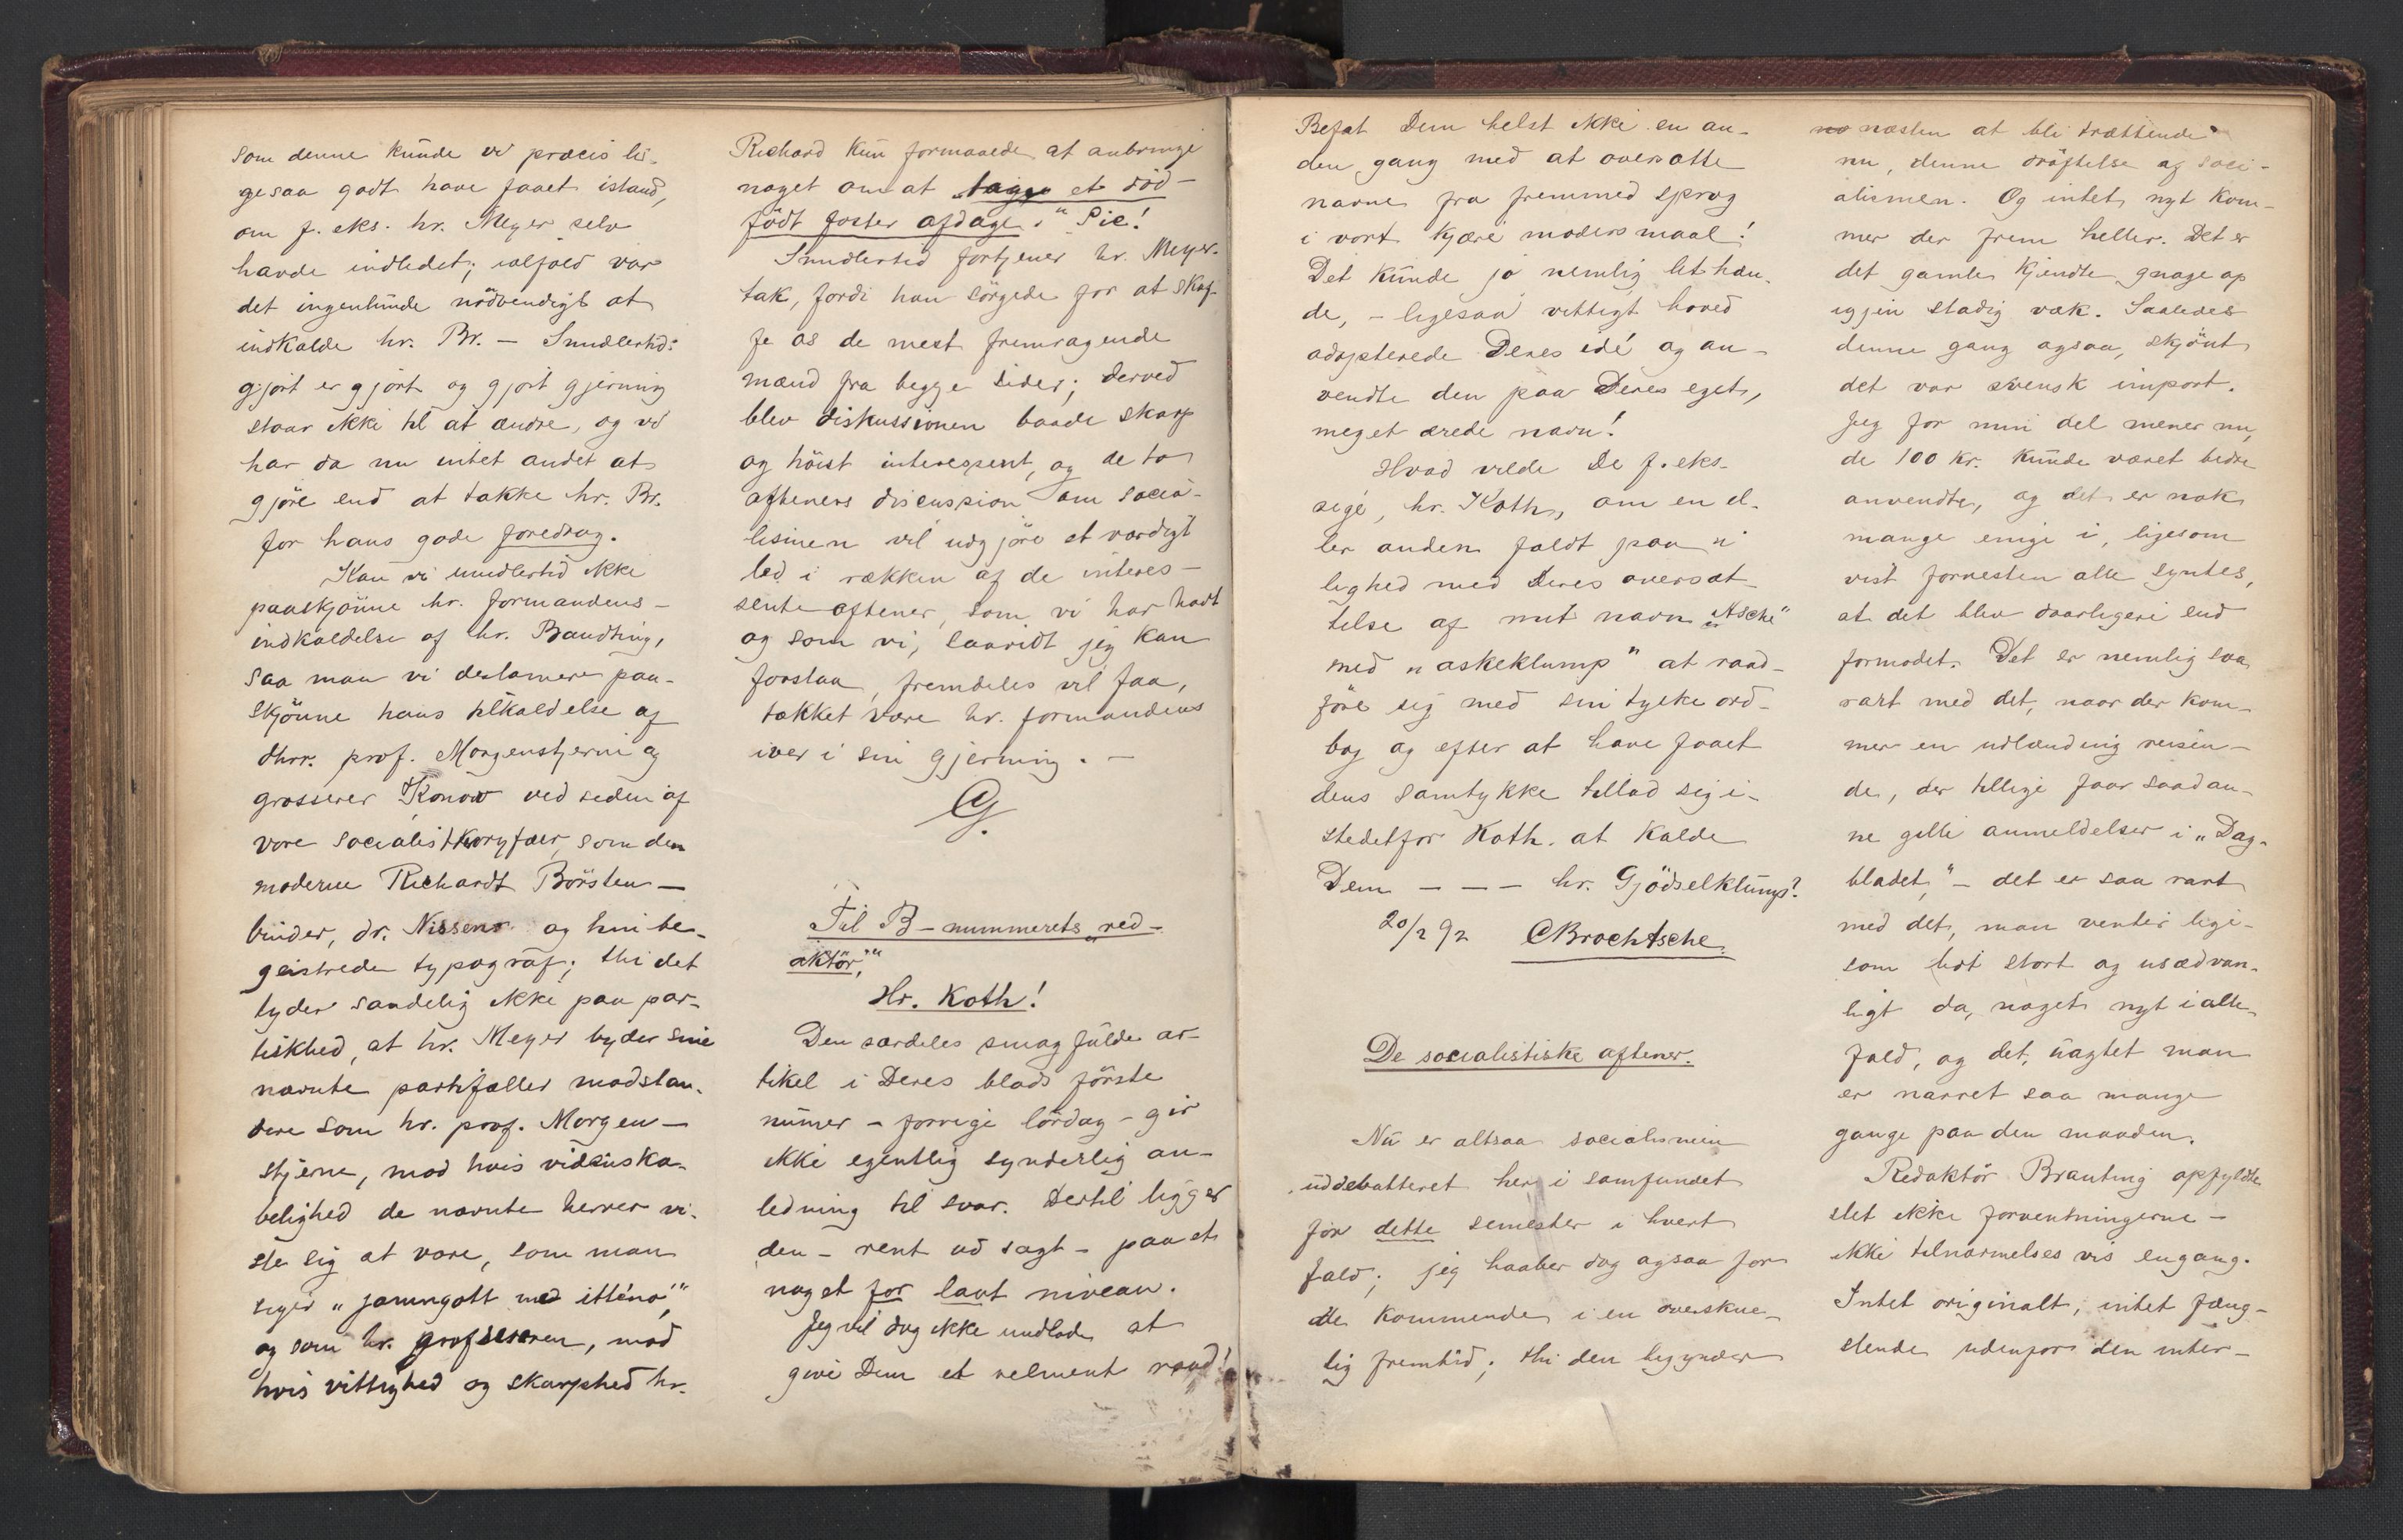 som denne kunde vi præcis li-
gesaa godt have faaet istand,
om f. eks. hr. Meyer selv
havde indledet; ialfald var
det ingenlunde nödvendigt at
indkalde hr. Br. — Imidlertid:
gjort er gjort og gjort gjerning
staar ikke til at ændre, og vi
har da nu intet andet at
gjöre end at takke hr. Br.
for hans gode foredrag.
Kan vi imidlertid ikke
paaskjönne hr. formandens
indkaldelse af hr. Brandting,
saa maa vi destomere paa-
skjönne hans tilkaldelse af
dhrr. prof. Morgenstjerne og
grosserer Konow ved siden af
vore socialistkoryfæer, som den
moderne Richardt Börsten-
binder, dr. Nissen og hin be-
geistrede typograf; thi det
tyder sandelig ikke paa par-
tiskhed, at hr. Meyer byder sine
nævnte partifæller modstan-
dere som hr. prof. Morgen-
stjerne, mod hvis videnska-
belighed de nævnte herrer vi-
ste sig at være, som man
siger „jamngott med itténo",
og som hr. professoren, mod
hvis vittighed og skarphed hr.
Richard kun formaaede at anbringe
noget om at „tagge et död-
födt foster afdage." Sic!
Imidlertid fortjener hr. Meyer
tak, fordi han sörgede for at skaf-
fe os de mest fremragende
mænd fra begge sider; derved
blev diskussionen baade skarp
og höist interessent, og de to
afteners discussion om socia-
lismen vil udgjöre et værdigt
led i rækken af de interes-
sente aftener, som vi har havt
og som vi, saavidt jeg kan
forstaa, fremdeles vil faa,
takket være hr. formandens
iver i sin gjerning. —
G.
Til B-nummerets „red-
aktör",
Hr. Koth!
Den særdeles smagfulde ar-
tikel i Deres blads förste
numer - forrige lördag - gir
ikke egentlig synderlig an-
ledning til svar. Dertil ligger
den - rent ud sagt - paa et
noget for lavt niveau.
Jeg vil dog ikke undlade at
give Dem et velment raad!
Befat Dem helst ikke en an-
den gang med at oversætte
navne fra fremmed sprog
i vort kjære modersmaal!
Det kunde jo nemlig let hæn-
de, - ligesaa vittigt hoved
adopterede Deres idé og an-
vendte den paa Deres eget,
meget ærede navn!
Hvad vilde De f. eks.
sige, hr. Koth, om en el-
ler anden faldt paa i
lighed med Deres oversæt-
telse af mit navn „Asche"
med „askeklump" at raad-
före sig med sin tyske ord-
bog og efter at have faaet
dens samtykke tillod sig i-
stedetfor Koth at kalde
Dem — — — hr. Gjödselklump?
20/2 92 CBrochAsche.
De socialistiske aftener.
Nu er altsaa socialismen
uddebatteret her i samfundet
for dette semester i hvert
fald; jeg haaber dog ogsaa for
de kommende i en overskue-
lig fremtid; thi den begynder
næsten at bli trættende
nu, denne dröftelse af soci-
alismen. Og intet nyt kom-
mer der frem heller. Det er
det gamle kjendte gnage op
igjen stadig væk. Saaledes
denne gang ogsaa, skjönt
det var svensk import.
Jeg for min del mener nu,
de 100 kr. kunde været bedre
anvendte, og det er nok
mange enige i, ligesom
vist forresten alle syntes,
at det blev daarligere end
formodet. Det er nemlig saa
rart med det, naar der kom-
mer en udlænding reisen-
de, der tillige faar saadan-
ne gilde anmeldelser i „Dag-
bladet," - det er saa rart
med det, man venter lige-
som lidt stort og usædvan-
ligt da, noget nyt i alle-
fald, og det, uagtet man
er narret saa mange
gange paa den maaden.
Redaktör Branting opfyldte
slet ikke forventningerne -
ikke tilnærmelsesvis engang.
Intet originalt, intet fæng-
slende udenfor den inter-